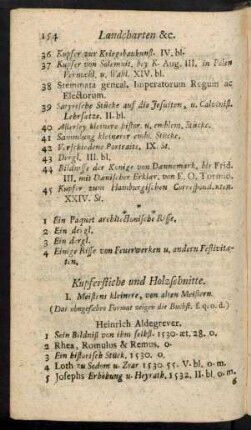 154 Landcharten &c.
36 Kupfer zur Kriegsbaukunst. IV. bl.
37 Kupfer von Solennit, bey K. Aug. III. in Polen
Vermähl. u. Wahl. XIV. bl.
38 Stemmata geneal. Imperatorum Regum ac
Electorum.
39 Satyrische Stücke auf die Jesuiten, u. Calvinist.
Lehrsätze. II. bl.
40 Allerley kleinere histor. u. emblem. Stücke.
41 Sammlung kleinerer embl. Stücke.
42 Verschiedene Portraite, IX. St.
43 Dergl. III. bl.
44 Bildnisse der Könige von Dannemark, bis Frid.
III. mit Dänischer Erklär. von E. O.
45 Kupfer zum Hamburgischen Correspondenten.
XXIV. St.
1 Ein Paquet architectonische Risse.
2 Ein dergl.
3 Ein dergl.
4 Einige Risse von Feuerwerken u. andern Festivitæ-
ten.
Kupferstiche und Holzschnitte.
I. Meistens kleinere, von alten Meistern.
(Das ohngefähre Format zeigen die Buchst. f. q. o. d.)
Heinrich Aldegrever.
1 Sein Bildniß von ihm selbst. 1530. æt. 28. o.
2 Rhea, Romulus & Remus. o.
3 Ein historisch Stück, 1530. o.
4 Loth zu Sodom u. Zoar 1530. 55. V. bl. o-m.
5 Josephs Erhöhung u. Heyrath. 1532. II bl. o-m.
6